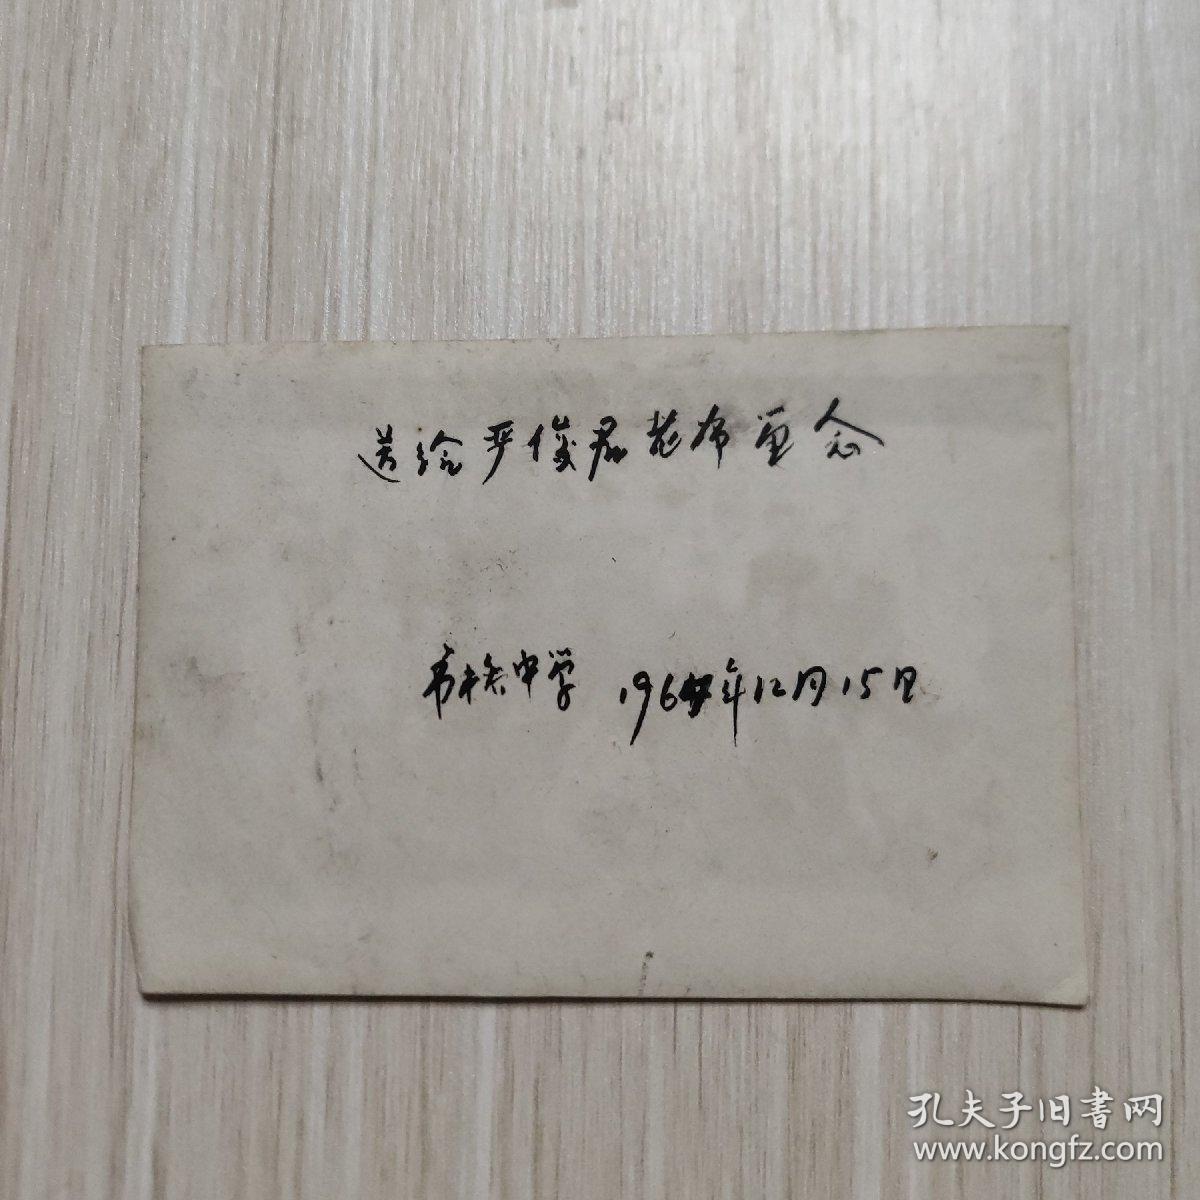 送给严俊君老师留念
中学 1964年12月15日
孔夫子旧书网
www.kongfz.com